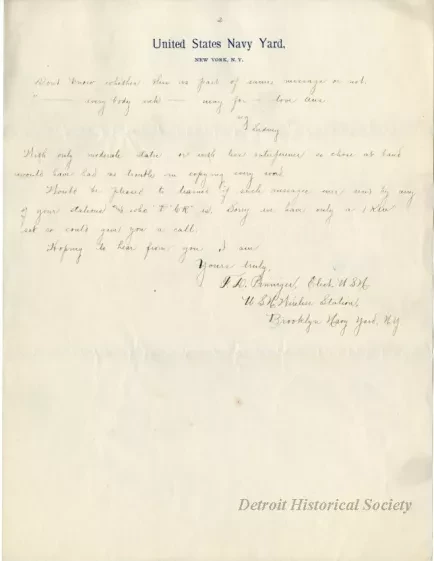 2
United States Navy Yard,
NEW YORK, N.Y.
Dont know whether this is part of same message or not.
"—— every body sick —— away for — love Ans
With only moderate static or with less interference so close at hand
would have had no trouble in copying every word
Would be pleased to learn if such messages were sent by any
of your stations and who "CK" is. Sorry we have only a 1 KW
set or could give you a call.
Hoping to hear from you I am
Yours truly,
Elect. U.S.N.
U.S.N. Wireless Station,
Brooklyn Navy Yard, N.Y.
Detroit Historical Society